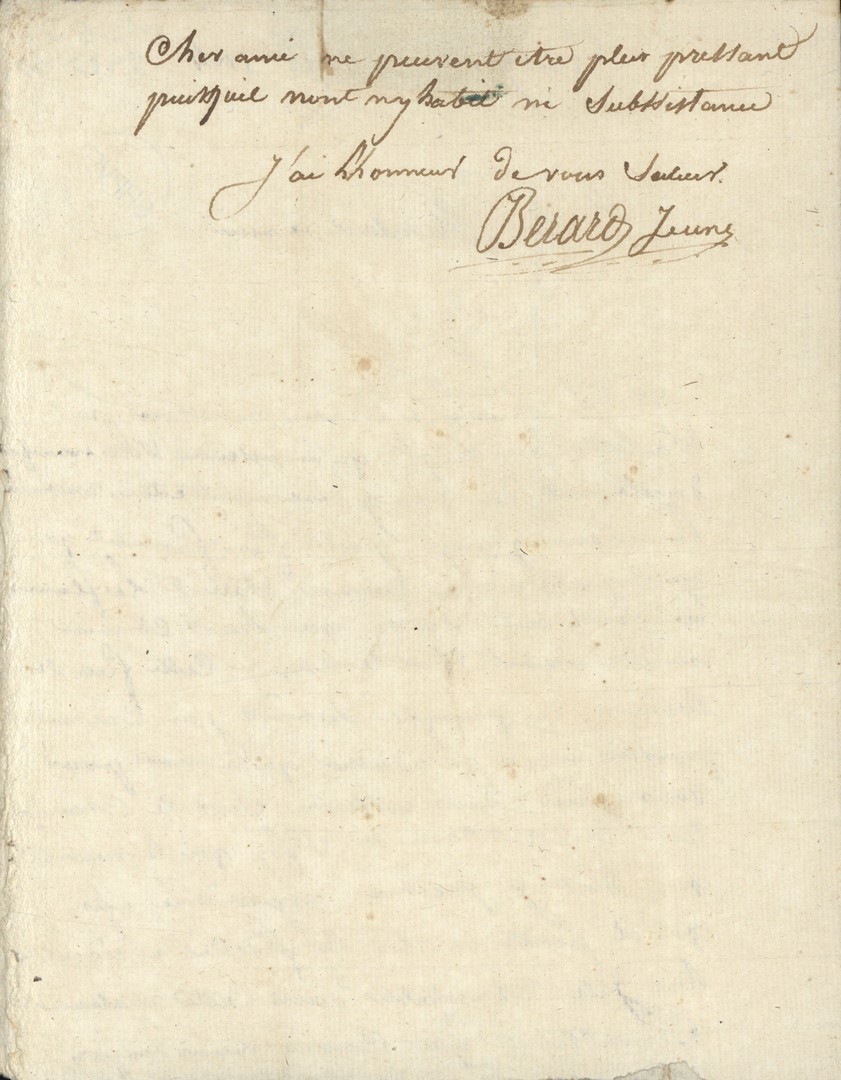 Cher ami ne peuvent être plus pressant
puisquil nont ny habit ni Subsistance
J'ai Lhonneur de vous Saluer.
Berard Jeune